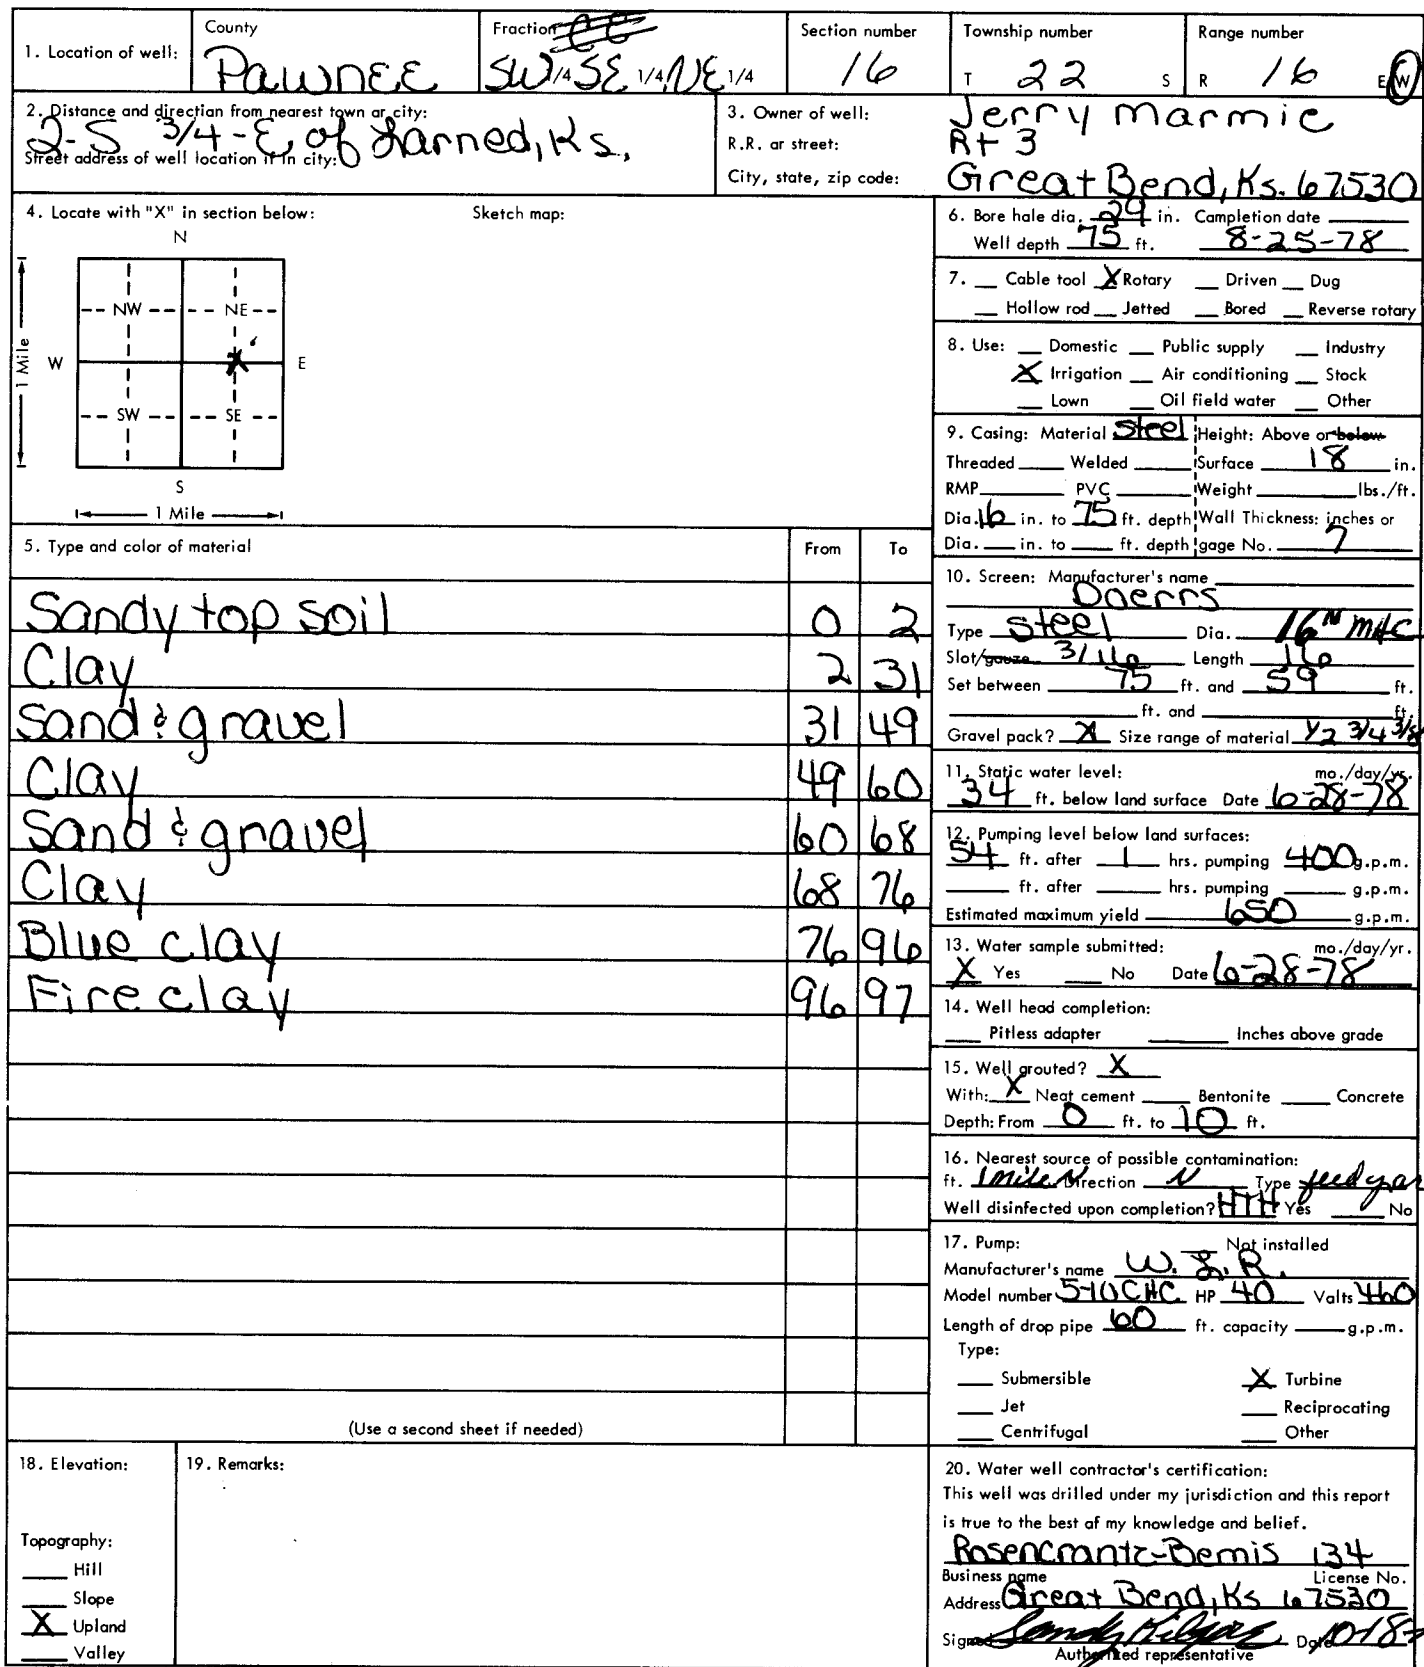 1. Location of well: County Pawnee Fraction SW 1/4 SE 1/4 NE 1/4 Section number 16 Township number T 22 S Range number R 16 E W
2. Distance and direction from nearest town ar city:
2-S 3/4-E of Larned, Ks.
Street address of well location if in city:
3. Owner of well: Jerry Marmie
R.R. ar street: Rt 3
City, state, zip code: Great Bend, Ks. 67530
4. Locate with "X" in section below: Sketch map:
N
NW NE
W X E
1 Mile
SW SE
S
1 Mile
5. Type and color of material From To
Sandy top soil 0 2
Clay 2 31
Sand & gravel 31 49
Clay 49 60
Sand & gravel 60 68
Clay 68 76
Blue clay 76 96
Fire clay 96 97
(Use a second sheet if needed)
6. Bore hale dia. 29 in. Campletion date
Well depth 75 ft. 8-25-78
7. Cable tool X Rotary Driven Dug
Hollow rod Jetted Bored Reverse rotary
8. Use: Domestic Public supply Industry
X Irrigation Air conditioning Stock
Lown Oil field water Other
9. Casing: Material Steel Height: Above or below
Threaded Welded Surface 18 in.
RMP PVC Weight lbs./ft.
Dia. 16 in. to 75 ft. depth Wall Thickness: inches or
Dia. in. to ft. depth gage No. 7
10. Screen: Manufacturer's name
Doerrs
Type Steel Dia. 16"
Slot/gauze 3/16 Length 16
Set between 75 ft. and 59 ft.
ft. and ft.
Gravel pack? X Size range of material 1/2 3/4 3/8
11. Static water level: mo./day/yr.
34 ft. below land surface Date 6-28-78
12. Pumping level below land surfaces:
54 ft. after 1 hrs. pumping 400 g.p.m.
ft. after hrs. pumping g.p.m.
Estimated maximum yield 650 g.p.m.
13. Water sample submitted: mo./day/yr.
X Yes No Date 6-28-78
14. Well head completion:
Pitless adapter Inches above grade
15. Well grouted? X
With: X Neat cement Bentonite Concrete
Depth: From 0 ft. to 10 ft.
16. Nearest source of possible contamination:
ft. 1 mile N Direction N Type feed yar
Well disinfected upon completion? HTH Yes No
17. Pump: Not installed
Manufacturer's name W. L. R.
Model number 5-10CHC HP 40 Valts 460
Length of drop pipe 60 ft. capacity g.p.m.
Type:
Submersible X Turbine
Jet Reciprocating
Centrifugal Other
18. Elevation:
Topography:
Hill
Slope
X Upland
Valley
19. Remarks:
20. Water well contractor's certification:
This well was drilled under my jurisdiction and this report
is true to the best af my knowledge and belief.
Rosencrantz-Bemis 134
Business name License No.
Address Great Bend, Ks 67530
Signed Sandy Kilgore Date 10-18-
Authorized representative